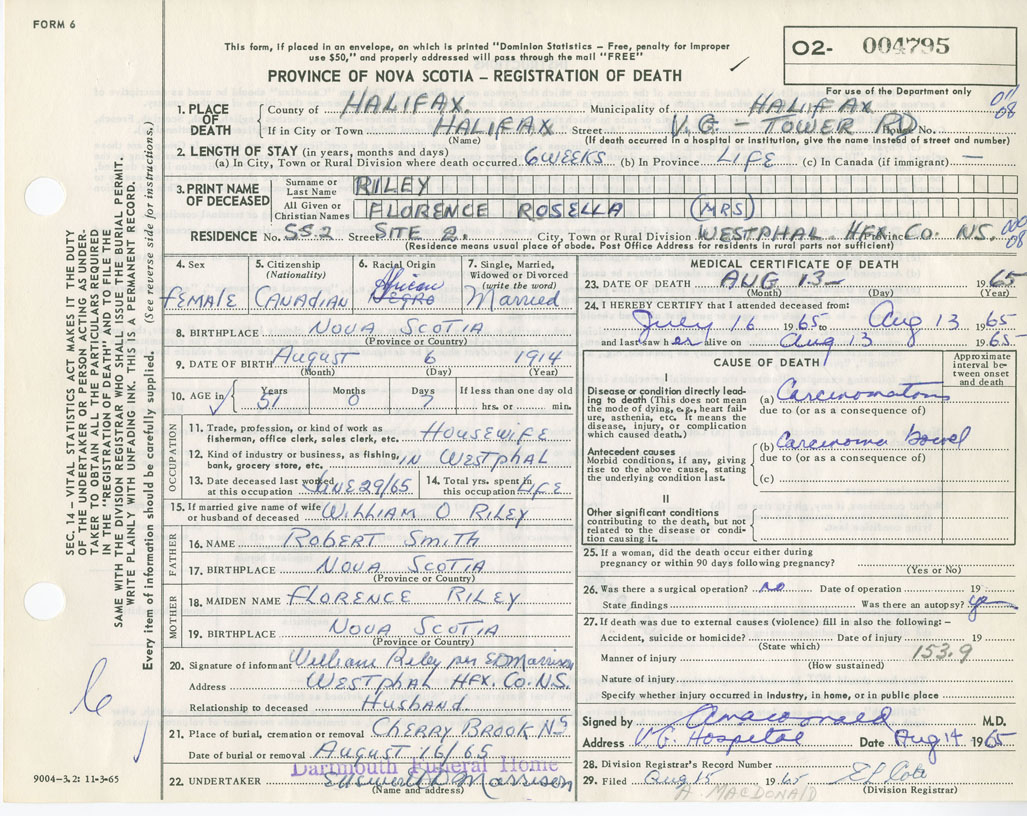 FORM 6
This form, if placed in an envelope, on which is printed "Dominion Statistics – Free, penalty for improper
use $50," and properly addressed will pass through the mail "FREE"
PROVINCE OF NOVA SCOTIA – REGISTRATION OF DEATH
O2- 004795
For use of the Department only
SEC. 14 – VITAL STATISTICS ACT MAKES IT THE DUTY
OF THE UNDERTAKER OR PERSON ACTING AS UNDER-
TAKER TO OBTAIN ALL THE PARTICULARS REQUIRED
IN THE "REGISTRATION OF DEATH" AND TO FILE THE
SAME WITH THE DIVISION REGISTRAR WHO SHALL ISSUE THE BURIAL PERMIT.
WRITE PLAINLY WITH UNFADING INK. THIS IS A PERMANENT RECORD.
Every item of information should be carefully supplied. (See reverse side for instructions.)
1. PLACE OF DEATH County of HALIFAX. Municipality of HALIFAX
08
If in City or Town HALIFAX Street V.G. – TOWER RD No.
(Name) (If death occurred in a hospital or institution, give the name instead of street and number)
2. LENGTH OF STAY (in years, months and days)
(a) In City, Town or Rural Division where death occurred 6 WEEKS (b) In Province LIFE (c) In Canada (if immigrant) —
3. PRINT NAME OF DECEASED
Surname or Last Name RILEY
All Given or Christian Names FLORENCE ROSELLA (MRS)
RESIDENCE No. SS2 Street SITE 2. City, Town or Rural Division WESTPHAL HFX. Province Co. NS.
08
(Residence means usual place of abode. Post Office Address for residents in rural parts not sufficient)
4. Sex FEMALE
5. Citizenship (Nationality) CANADIAN
6. Racial Origin African NEGRO
7. Single, Married, Widowed or Divorced (write the word) Married
8. BIRTHPLACE NOVA SCOTIA
(Province or Country)
9. DATE OF BIRTH August 6 1914
(Month) (Day) (Year)
10. AGE in Years 51 Months 0 Days 7 If less than one day old hrs. or min.
OCCUPATION
11. Trade, profession, or kind of work as fisherman, office clerk, sales clerk, etc. HOUSEWIFE
12. Kind of industry or business, as fishing, bank, grocery store, etc. IN WESTPHAL
13. Date deceased last worked at this occupation JUNE 29/65
14. Total yrs. spent in this occupation LIFE
15. If married give name of wife or husband of deceased WILLIAM O RILEY
FATHER
16. NAME ROBERT SMITH
17. BIRTHPLACE NOVA SCOTIA
(Province or Country)
MOTHER
18. MAIDEN NAME FLORENCE RILEY
19. BIRTHPLACE NOVA SCOTIA
(Province or Country)
20. Signature of informant William Riley per ED Morrison
Address WESTPHAL HFX. CO. N.S.
Relationship to deceased Husband.
21. Place of burial, cremation or removal CHERRY BROOK NS
Date of burial or removal AUGUST 16/65
Dartmouth Funeral Home
22. UNDERTAKER Ellsworth D Morrison
(Name and address)
9004-3.2: 11-3-65
MEDICAL CERTIFICATE OF DEATH
23. DATE OF DEATH AUG 13 — 1965
(Month) (Day) (Year)
24. I HEREBY CERTIFY that I attended deceased from:
July 16 1965 to Aug 13 1965
and last saw her alive on Aug 13 1965
CAUSE OF DEATH
Approximate interval between onset and death
I
Disease or condition directly leading to death (This does not mean the mode of dying, e.g., heart failure, asthenia, etc. It means the disease, injury, or complication which caused death.)
(a) Carcinomatosis
due to (or as a consequence of)
Antecedent causes
Morbid conditions, if any, giving rise to the above cause, stating the underlying condition last.
(b) Carcinoma bowel
due to (or as a consequence of)
(c)
II
Other significant conditions contributing to the death, but not related to the disease or condition causing it.
25. If a woman, did the death occur either during
pregnancy or within 90 days following pregnancy?
(Yes or No)
26. Was there a surgical operation? no Date of operation 19
State findings Was there an autopsy? yes
27. If death was due to external causes (violence) fill in also the following: –
Accident, suicide or homicide? Date of injury 19
(State which)
Manner of injury 153.9
(How sustained)
Nature of injury
Specify whether injury occurred in industry, in home, or in public place
Signed by Amacdonald M.D.
Address V.G. Hospital Date Aug 14 1965
28. Division Registrar's Record Number
29. Filed Aug 15 1965
(Division Registrar)
A. MACDONALD